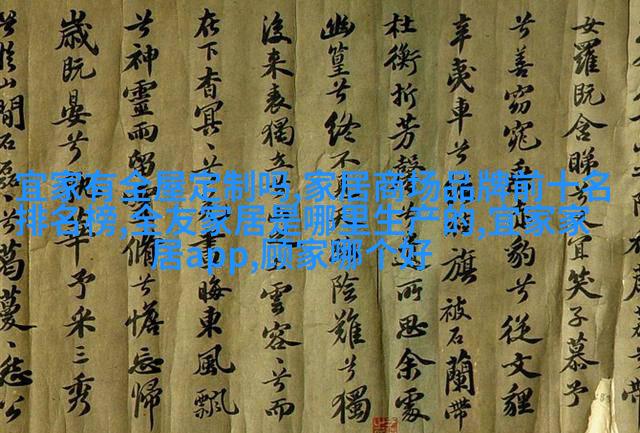 宜家有全屋定制吗,家居商场品牌前十名
排名榜,全友家居是哪里生产的,宜家家
居app,顾家哪个好
女羅既含睇宜笑子慕予
兮善窈窕豹兮從文貍
辛夷車兮旗被石蘭帶
杜衡折芳馨所思余處
幽篁兮終不險難兮獨
後來表獨立雲容容兮而
在下杳冥冥晝晦東風飄
兮神靈雨留脩兮憺忘歸
歲既晏兮華予采三秀
於山間石磊葛蔓怨公